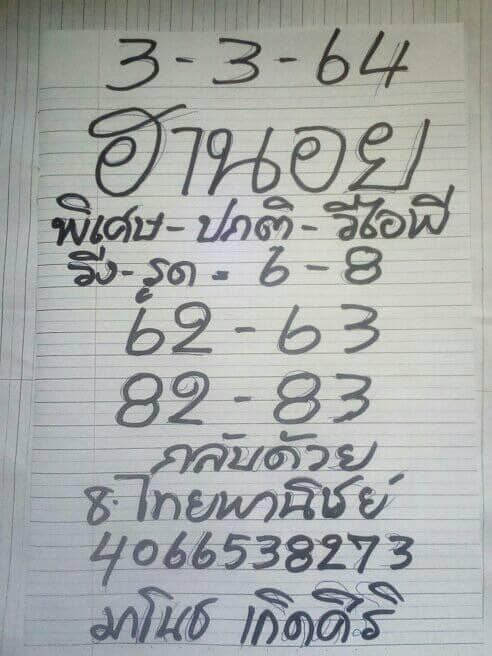 3-3-64
ฮานอย
พิเศษ-ปกติ-วีไอพี
วิ่ง-รูด = 6-8
62-63
82-83
กลับด้วย
ธ.ไทยพานิชย์
4066538273
มาโนช เกิดคีรี